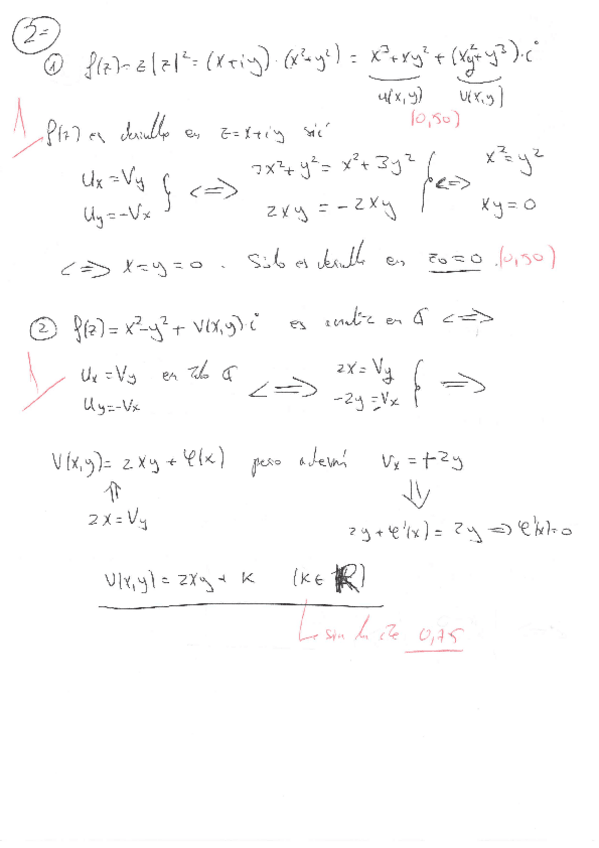 2=
① f(z)=z|z|²=(x+iy)·(x²+y²) = x³+xy²+(xy²+y³)·i
u(x,y) v(x,y)
1 (0,50)
f(z) es derivable en z=x+iy sii
Ux=Vy
Uy=-Vx } <=> 3x²+y²=x²+3y²
2xy=-2xy } <=> x²=y²
xy=0
<=> x=y=0. Sólo es derivable en z₀=0. (0,50)
② f(z)=x²-y²+V(x,y)·i es analítica en ℂ <=>
1 Ux=Vy en todo ℂ
Uy=-Vx <=> 2x=Vy
-2y=-Vx } =>
V(x,y)=2xy+φ(x) pero además Vx=+2y
⇑ ⇓
2x=Vy 2y+φ'(x)=2y => φ'(x)=0
V(x,y)=2xy+K (K∈ℝ)
sin la cte 0,75